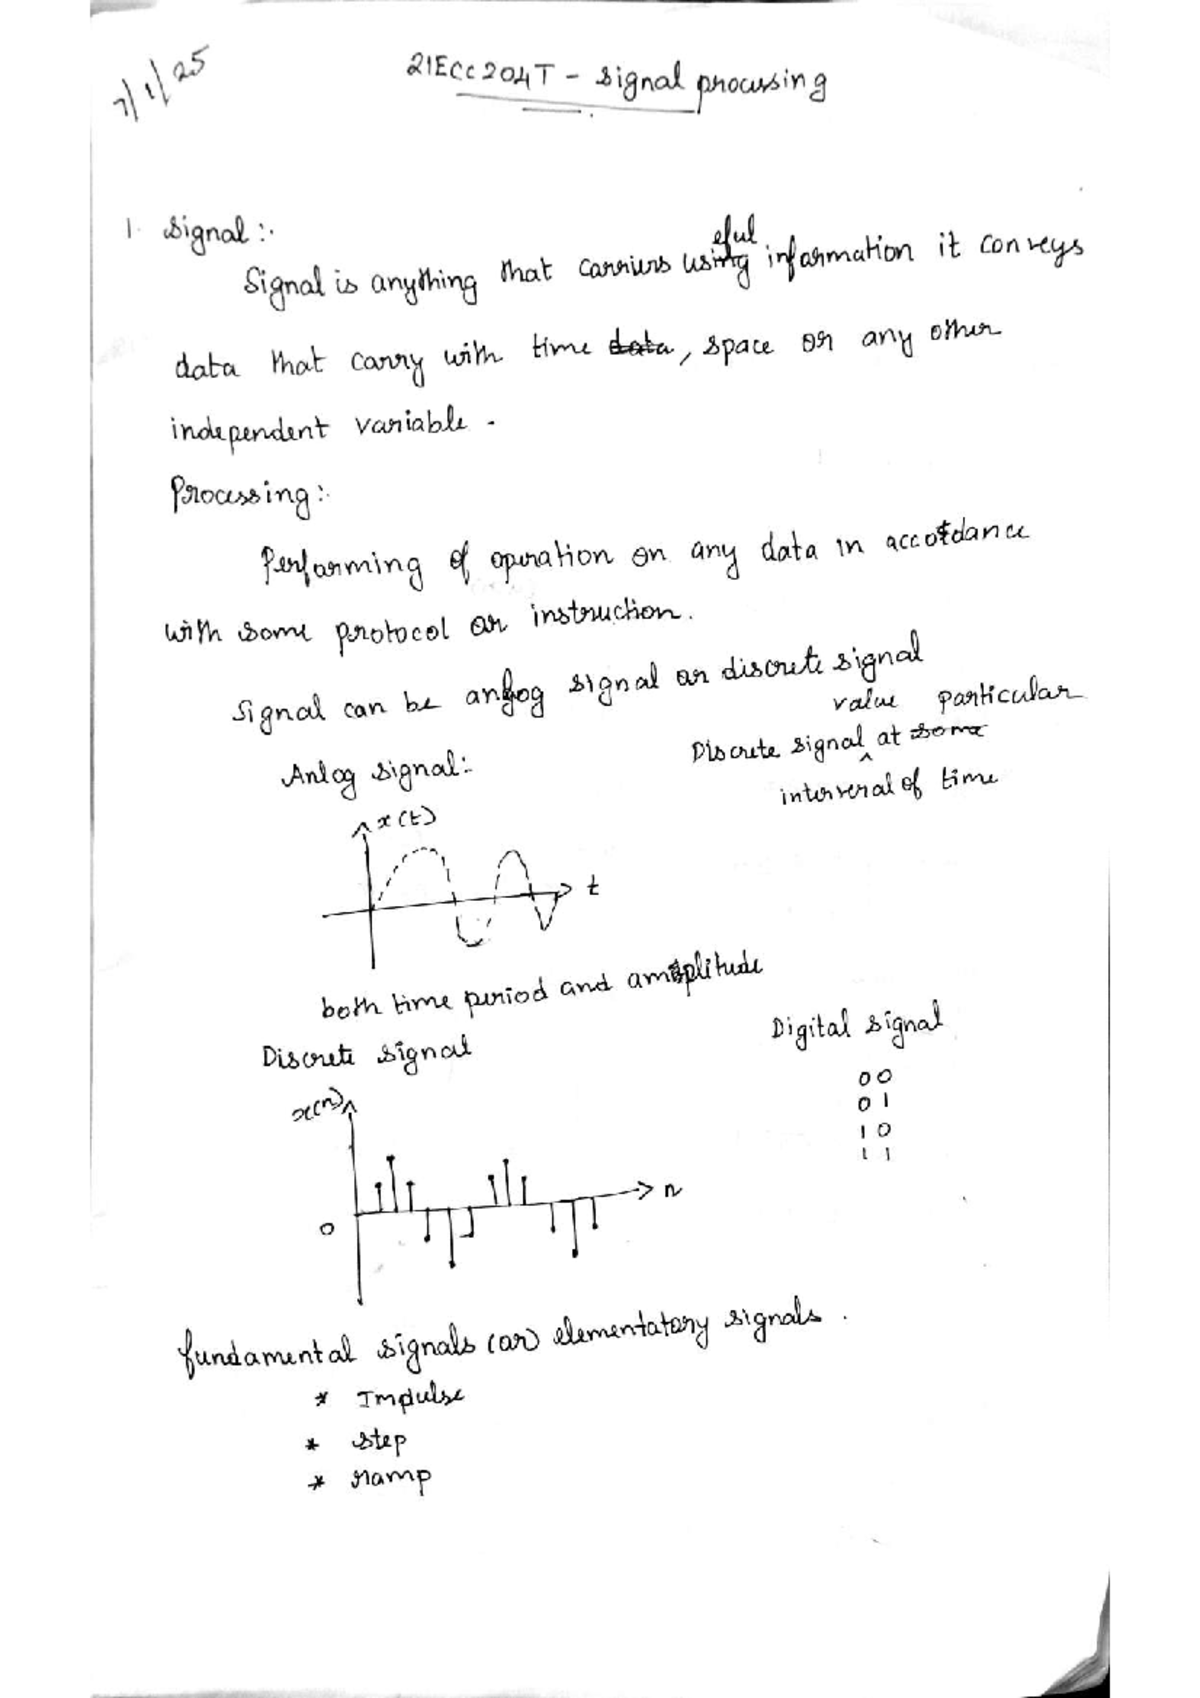 7/1/25
21ECC204T - Signal processing
1. Signal :-
Signal is anything that carriers useful information it conveys
data that carry with time data, space or any other
independent variable.
Processing :-
Performing of operation on any data in accordance
with some protocol or instruction.
Signal can be analog signal or discrete signal
Anlog signal :-
value particular
Discrete signal at some
interveral of time
x(t)
t
both time period and amplitude
Discrete signal
Digital signal
00
01
10
11
x(n)
n
0
fundamental signals (or) elementatory signals.
* Impulse
* step
* ramp